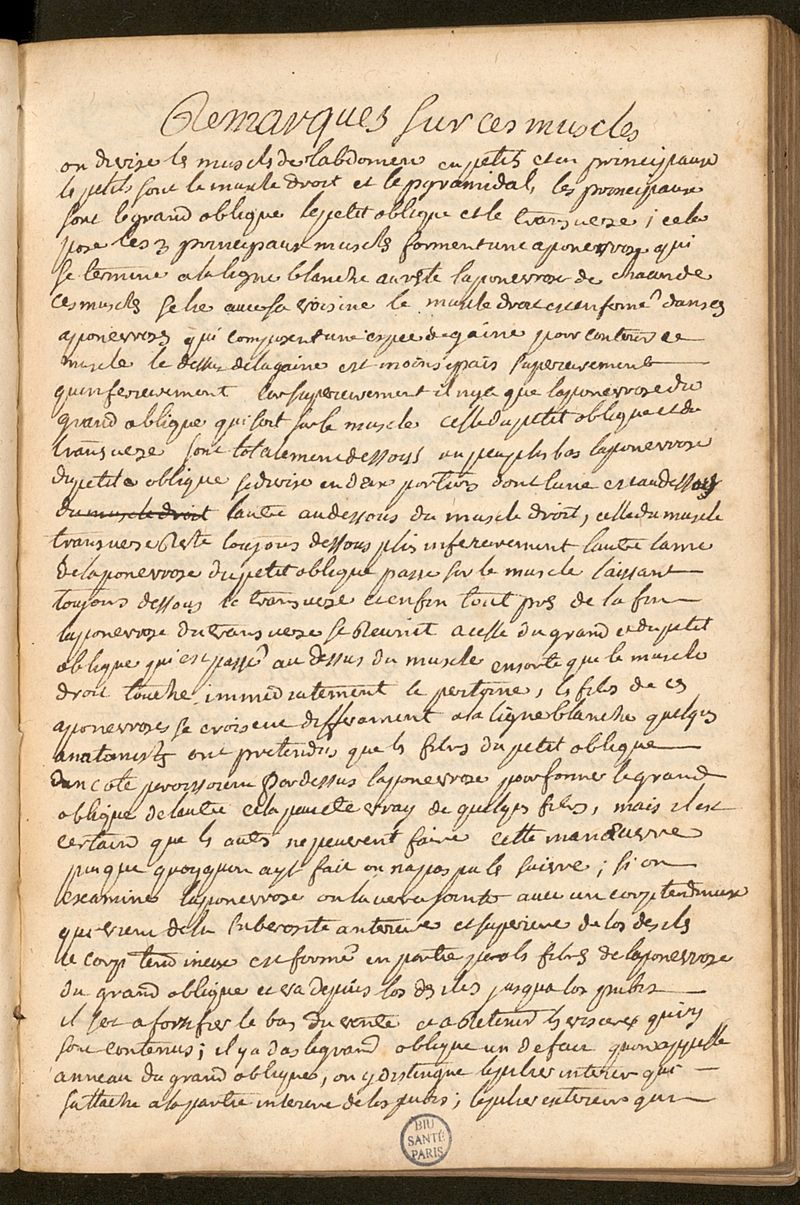 Remarques sur ces muscles
on divise les muscls de labdomen en petits et en principaux
les petits sont le muscle droit et le pyramidal, les principaux
sont le grand oblique le petit oblique et le transverse ; cela
posé les 3 principaux muscls forment une aponevrose qui
se termine a la ligne blanche au reste laponevrose de chacun de
ces muscles se lie avec sa voisine le muscle droit est enfermé dans ces
aponevroses qui composent une espece de gaine pour contenir ce
muscle le dessus de la gaine est moins epais superieurement
quinferieurement car superieurement il ny a que laponevrose du
grand oblique qui soit sur le muscle celle du petit oblique et du
transverse sont totalement dessous un peu plus bas laponevrose
du petit oblique se divise en deux parties dont lune est au dessus
du muscle droit lautre au dessous du muscle droit, celle du muscle
transverse reste toujours dessous plus inferieurement lautre lame
de laponevrose du petit oblique passe sur le muscle laissant
toujours dessous le transverse et enfin tout pres de la fin
laponevrose du transverse se reunit a celle du grand et du petit
oblique qui est passé au dessus du muscle en sorte que le muscle
droit touche immediatement le peritoine, les fibs de ces
aponevroses se croisent differament a la ligne blanche quelqs
anatomists ont pretendus que ls fibrs du petit oblique
dun coté passoient par dessus laponevrose pour former le grand
oblique de lautre cela peut etre vray de quelqs fibrs, mais il est
certain que ls auts ne peuvent faire cette manœuvre
puisque quoyquon ayt fait on na pas pu le suivre ; si on
examine laponevrose on la vera jointe avec un corp tendineux
qui vient de la tuberosité anterieure et superieure de los des iles
ce corp tendineux est formé en partie par ls fibrs de laponevrose
du grand oblique et va depuis los des iles jusqua los pubis
il sert a fortifier le bas du ventre et a retenir ls visceres qui y
sont contenus ; il y a das le grand oblique un defaut quon appelle
anneau du grand obliques, on y distingue le pilier interieur qui
sattache a la partie interieure de los pubis ; le pilier exterieur qui
BIU
SANTÉ
PARIS